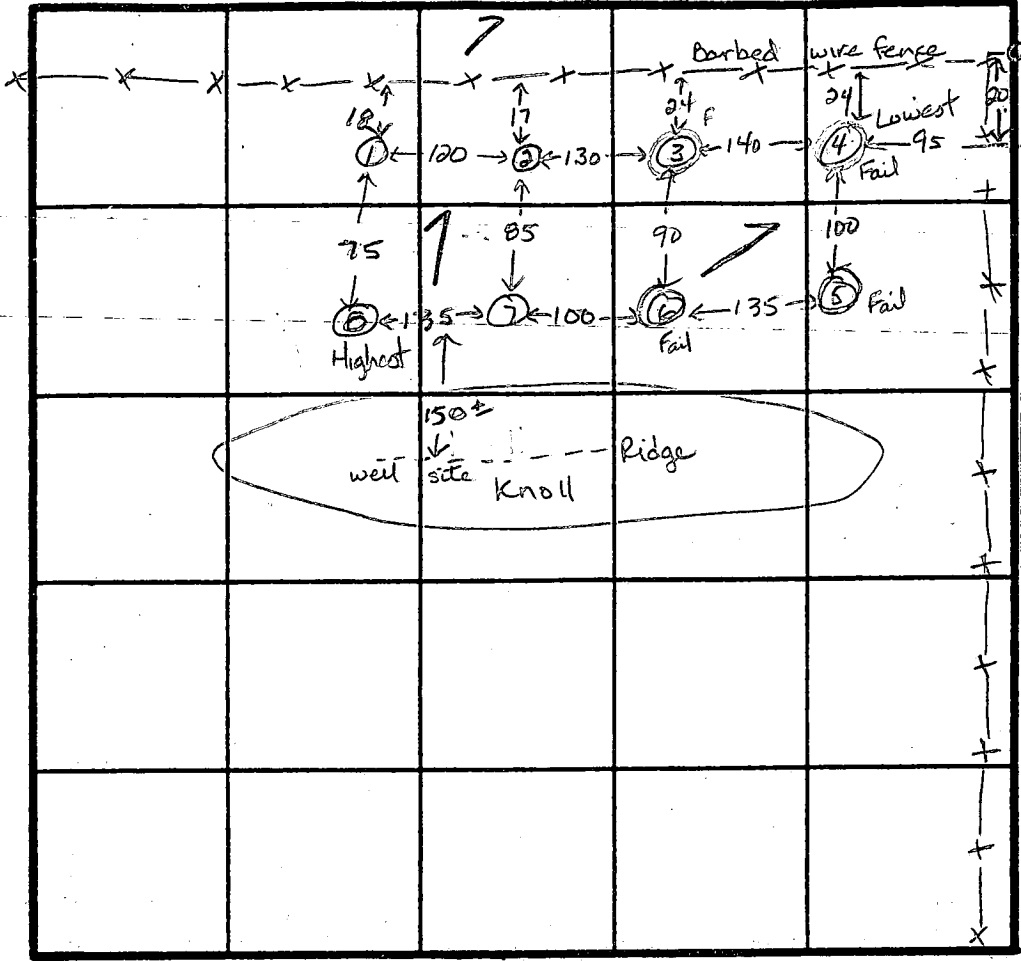 Barbed wire fence
18 17 24 F 24 Lowest 20
1 120 2 130 3 140 4 95
Fail
75 85 90 100
8 135 7 100 6 135 5 Fail
Highest Fail
150 ±
well site Ridge
Knoll